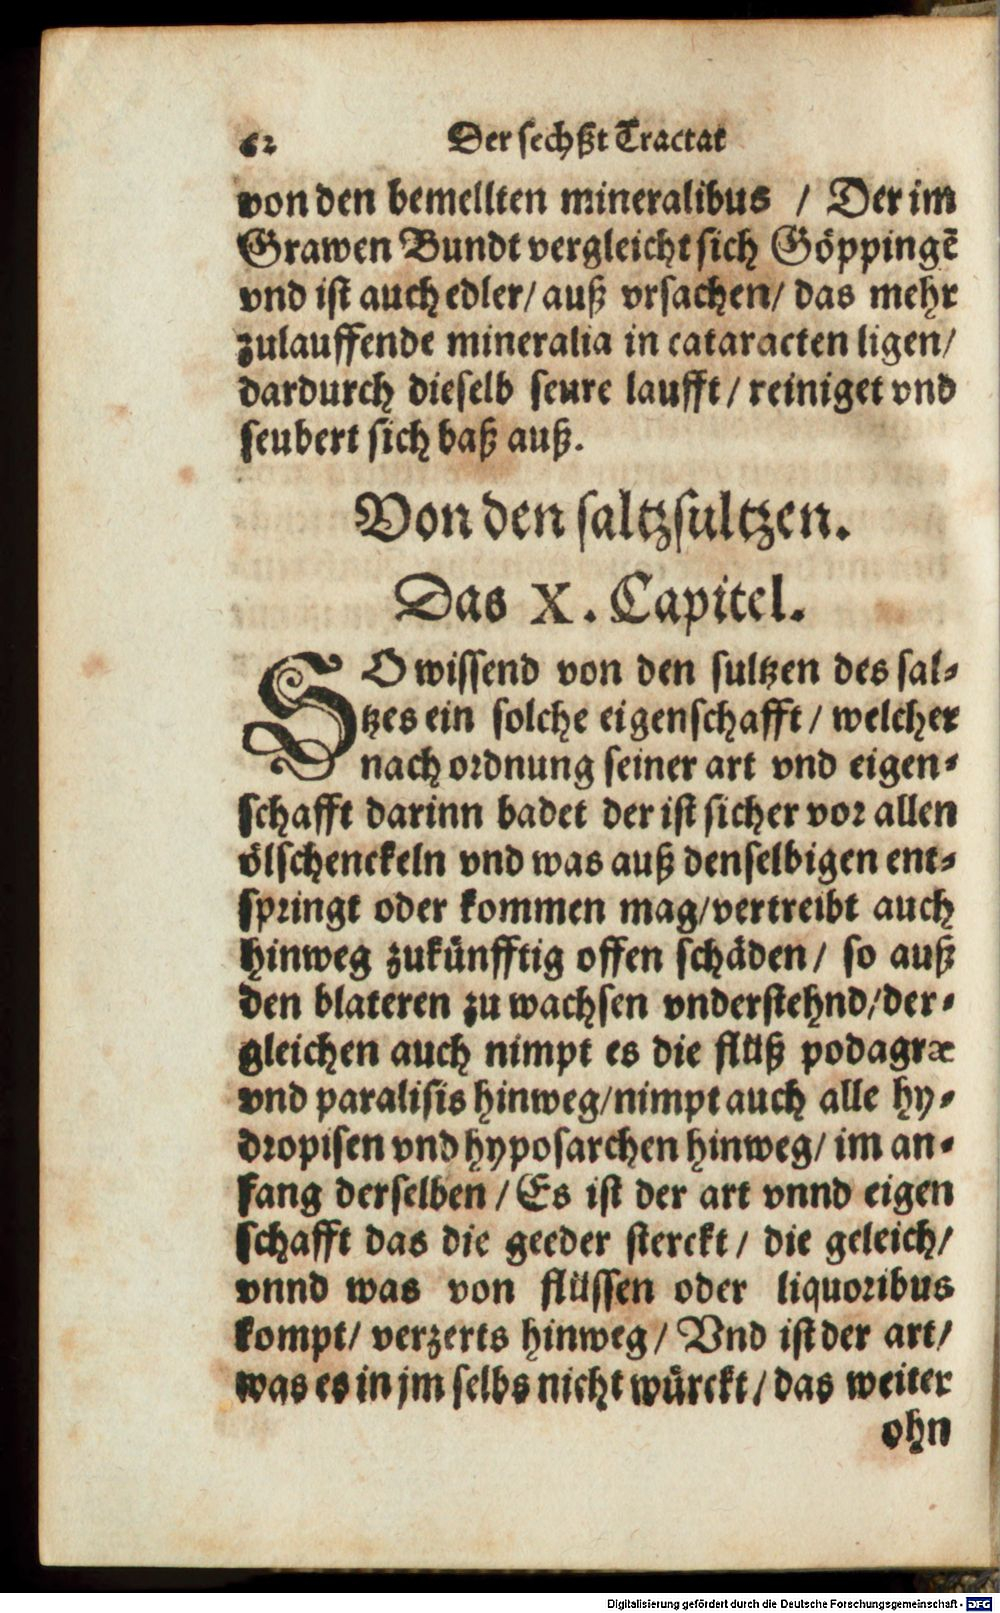 62 Der sechßt Tractat
von den bemellten mineralibus / Der im
Grawen Bundt vergleicht sich Göppingē
vnd ist auch edler/ auß vrsachen/ das mehr
zulauffende mineralia in cataracten ligen/
dardurch dieselb seure laufft/ reiniget vnd
seubert sich baß auß.
Von den saltzsultzen.
Das X. Capitel.
SO wissend von den sultzen des sal-
tzes ein solche eigenschafft/ welcher
nach ordnung seiner art vnd eigen-
schafft darinn badet der ist sicher vor allen
ölschenckeln vnd was auß denselbigen ent-
springt oder kommen mag/vertreibt auch
hinweg zukünfftig offen schäden/ so auß
den blateren zu wachsen vnderstehnd/der-
gleichen auch nimpt es die flüß podagræ
vnd paralisis hinweg/nimpt auch alle hy-
dropisen vnd hyposarchen hinweg/ im an-
fang derselben/ Es ist der art vnnd eigen
schafft das die geeder sterckt/ die geleich/
vnnd was von flüssen oder liquoribus
kompt/ verzerts hinweg/ Vnd ist der art/
was es in jm selbs nicht würckt/ das weiter
ohn
Digitalisierung gefördert durch die Deutsche Forschungsgemeinschaft - DFG